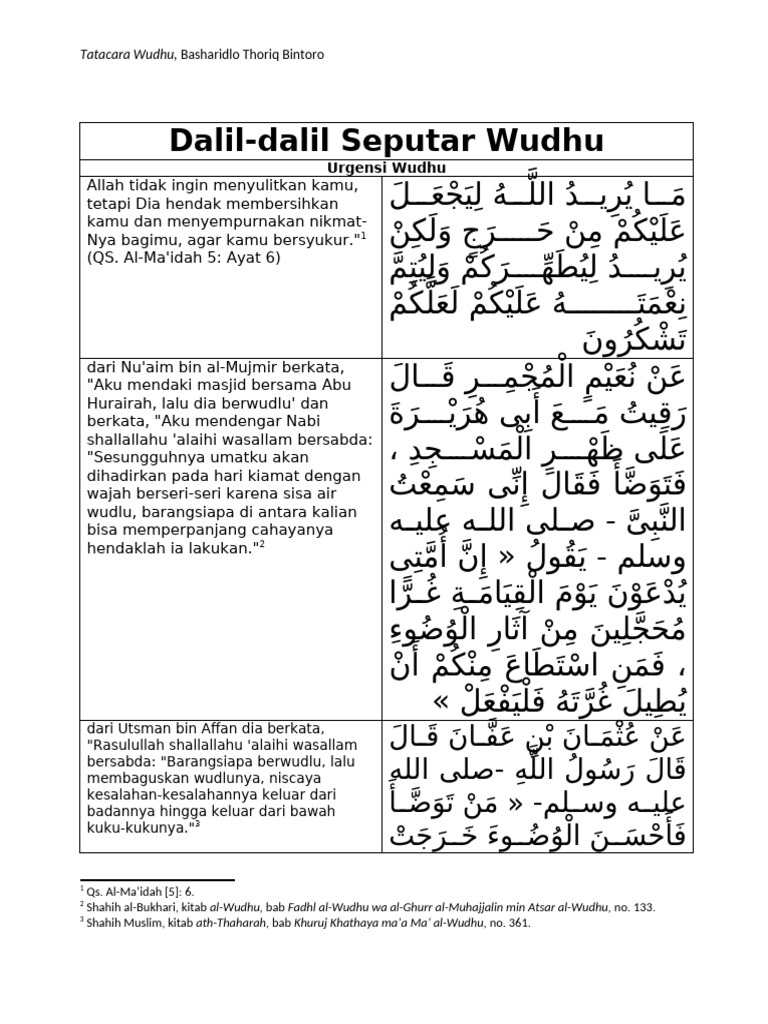 Tatacara Wudhu, Basharidlo Thoriq Bintoro
Dalil-dalil Seputar Wudhu
Urgensi Wudhu
Allah tidak ingin menyulitkan kamu,
tetapi Dia hendak membersihkan
kamu dan menyempurnakan nikmat-
Nya bagimu, agar kamu bersyukur."1
(QS. Al-Ma'idah 5: Ayat 6)
مَــا يُرِيــدُ اللَّــهُ لِيَجْعَــلَ
عَلَيْكُمْ مِنْ حَـــــرَجٍ وَلَكِنْ
يُرِيــــدُ لِيُطَهِّــــرَكُمْ وَلِيُتِمَّ
نِعْمَتَــــــــهُ عَلَيْكُمْ لَعَلَّكُمْ
تَشْكُرُونَ
dari Nu'aim bin al-Mujmir berkata,
"Aku mendaki masjid bersama Abu
Hurairah, lalu dia berwudlu' dan
berkata, "Aku mendengar Nabi
shallallahu 'alaihi wasallam bersabda:
"Sesungguhnya umatku akan
dihadirkan pada hari kiamat dengan
wajah berseri-seri karena sisa air
wudlu, barangsiapa di antara kalian
bisa memperpanjang cahayanya
hendaklah ia lakukan."2
عَنْ نُعَيْمٍ الْمُجْمِــرِ قَــالَ
رَقِيتُ مَــــعَ أَبِى هُرَيْــــرَةَ
عَلَى ظَهْـــرِ الْمَسْـــجِدِ ،
فَتَوَضَّأَ فَقَالَ إِنِّى سَمِعْتُ
النَّبِىَّ - صـلى اللـه عليـه
وسلم - يَقُولُ « إِنَّ أُمَّتِى
يُدْعَوْنَ يَوْمَ الْقِيَامَـةِ غُـرًّا
مُحَجَّلِينَ مِنْ آثَارِ الْوُضُوءِ
، فَمَنِ اسْتَطَاعَ مِنْكُمْ أَنْ
يُطِيلَ غُرَّتَهُ فَلْيَفْعَلْ »
dari Utsman bin Affan dia berkata,
"Rasulullah shallallahu 'alaihi wasallam
bersabda: "Barangsiapa berwudlu, lalu
membaguskan wudlunya, niscaya
kesalahan-kesalahannya keluar dari
badannya hingga keluar dari bawah
kuku-kukunya."3
عَنْ عُثْمَـانَ بْنِ عَفَّـانَ قَـالَ
قَالَ رَسُولُ اللَّهِ -صلى الله
عليـه وسـلم- « مَنْ تَوَضَّـأَ
فَأَحْسَــنَ الْوُضُــوءَ خَــرَجَتْ
1 Qs. Al-Ma'idah [5]: 6.
2 Shahih al-Bukhari, kitab al-Wudhu, bab Fadhl al-Wudhu wa al-Ghurr al-Muhajjalin min Atsar al-Wudhu, no. 133.
3 Shahih Muslim, kitab ath-Thaharah, bab Khuruj Khathaya ma'a Ma' al-Wudhu, no. 361.